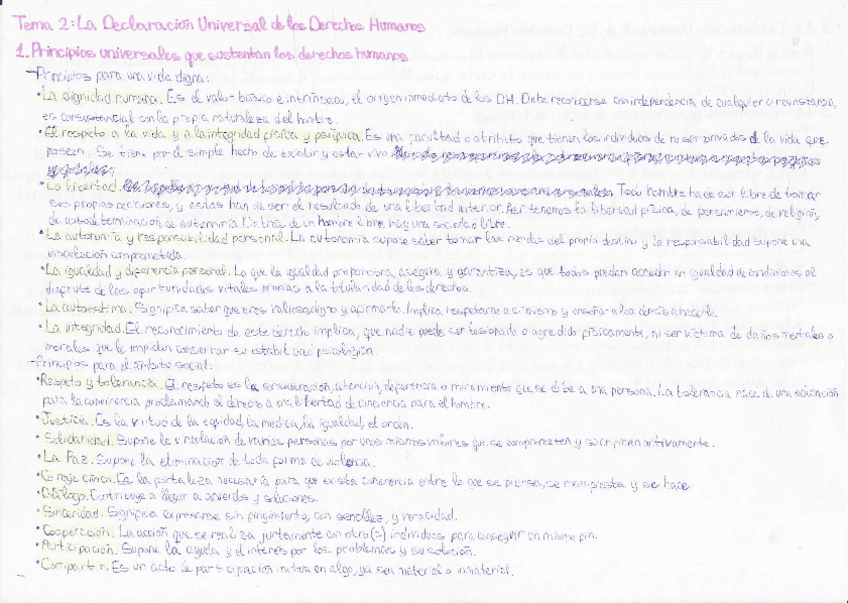 Tema 2: La Declaración Universal de los Derechos Humanos
1. Principios universales que sustentan los derechos humanos
-Principios para una vida digna:
•La dignidad humana. Es el valor básico e intrínseco, el origen inmediato de los DH. Debe reconocerse con independencia de cualquier circunstancia,
es consustancial con la propia naturaleza del hombre.
•El respeto a la vida y a la integridad física y psíquica. Es una facultad o atributo que tienen los individuos de no ser privados de la vida que
poseen. Se tiene por el simple hecho de existir y estar vivo
•La libertad. Todo hombre ha de ser libre de tomar
sus propias decisiones, y estas han de ser el resultado de una libertad interior. Así tenemos la libertad física, de pensamiento, de religión,
de autodeterminación, de autonomía. Detrás de un hombre libre, hay una sociedad libre.
•La autonomía y responsabilidad personal. La autonomía supone saber tomar las riendas del propio destino y la responsabilidad supone una
vinculación comprometida.
•La igualdad y diferencia personal. Lo que la igualdad proporciona, asegura y garantiza, es que todos puedan acceder en igualdad de condiciones al
disfrute de las oportunidades vitales previas a la titularidad de los derechos.
•La autoestima. Significa saber que eres valioso, digno y afirmarlo. Implica respetarse a sí mismo y enseñar a los demás a hacerlo.
•La integridad. El reconocimiento de este derecho implica, que nadie puede ser lesionado o agredido físicamente, ni ser víctima de daños mentales o
morales que le impidan conservar su estabilidad psicológica.
-Principios para el ámbito social:
•Respeto y tolerancia. El respeto es la consideración, atención, deferencia o miramiento que se debe a una persona. La tolerancia nace de una educación
para la convivencia proclamando el derecho a una libertad de conciencia para el hombre.
•Justicia. Es la virtud de la equidad, la medida, la igualdad, el orden.
•Solidaridad. Supone la vinculación de varias personas por unos mismos valores que se comprometen y sacrifican activamente.
•La Paz. Supone la eliminación de toda forma de violencia.
•Coraje cívico. Es la fortaleza necesaria para que exista coherencia entre lo que se piensa, se manifiesta y se hace.
•Diálogo. Contribuye a llegar a acuerdos y soluciones.
•Sinceridad. Significa expresarse sin fingimiento, con sencillez, y veracidad.
•Cooperación. La acción que se realiza juntamente con otro(s) individuos para conseguir un mismo fin.
•Participación. Supone la ayuda y el interés por los problemas y su solución.
•Compartir. Es un acto de participación mutua en algo, ya sea material o inmaterial.